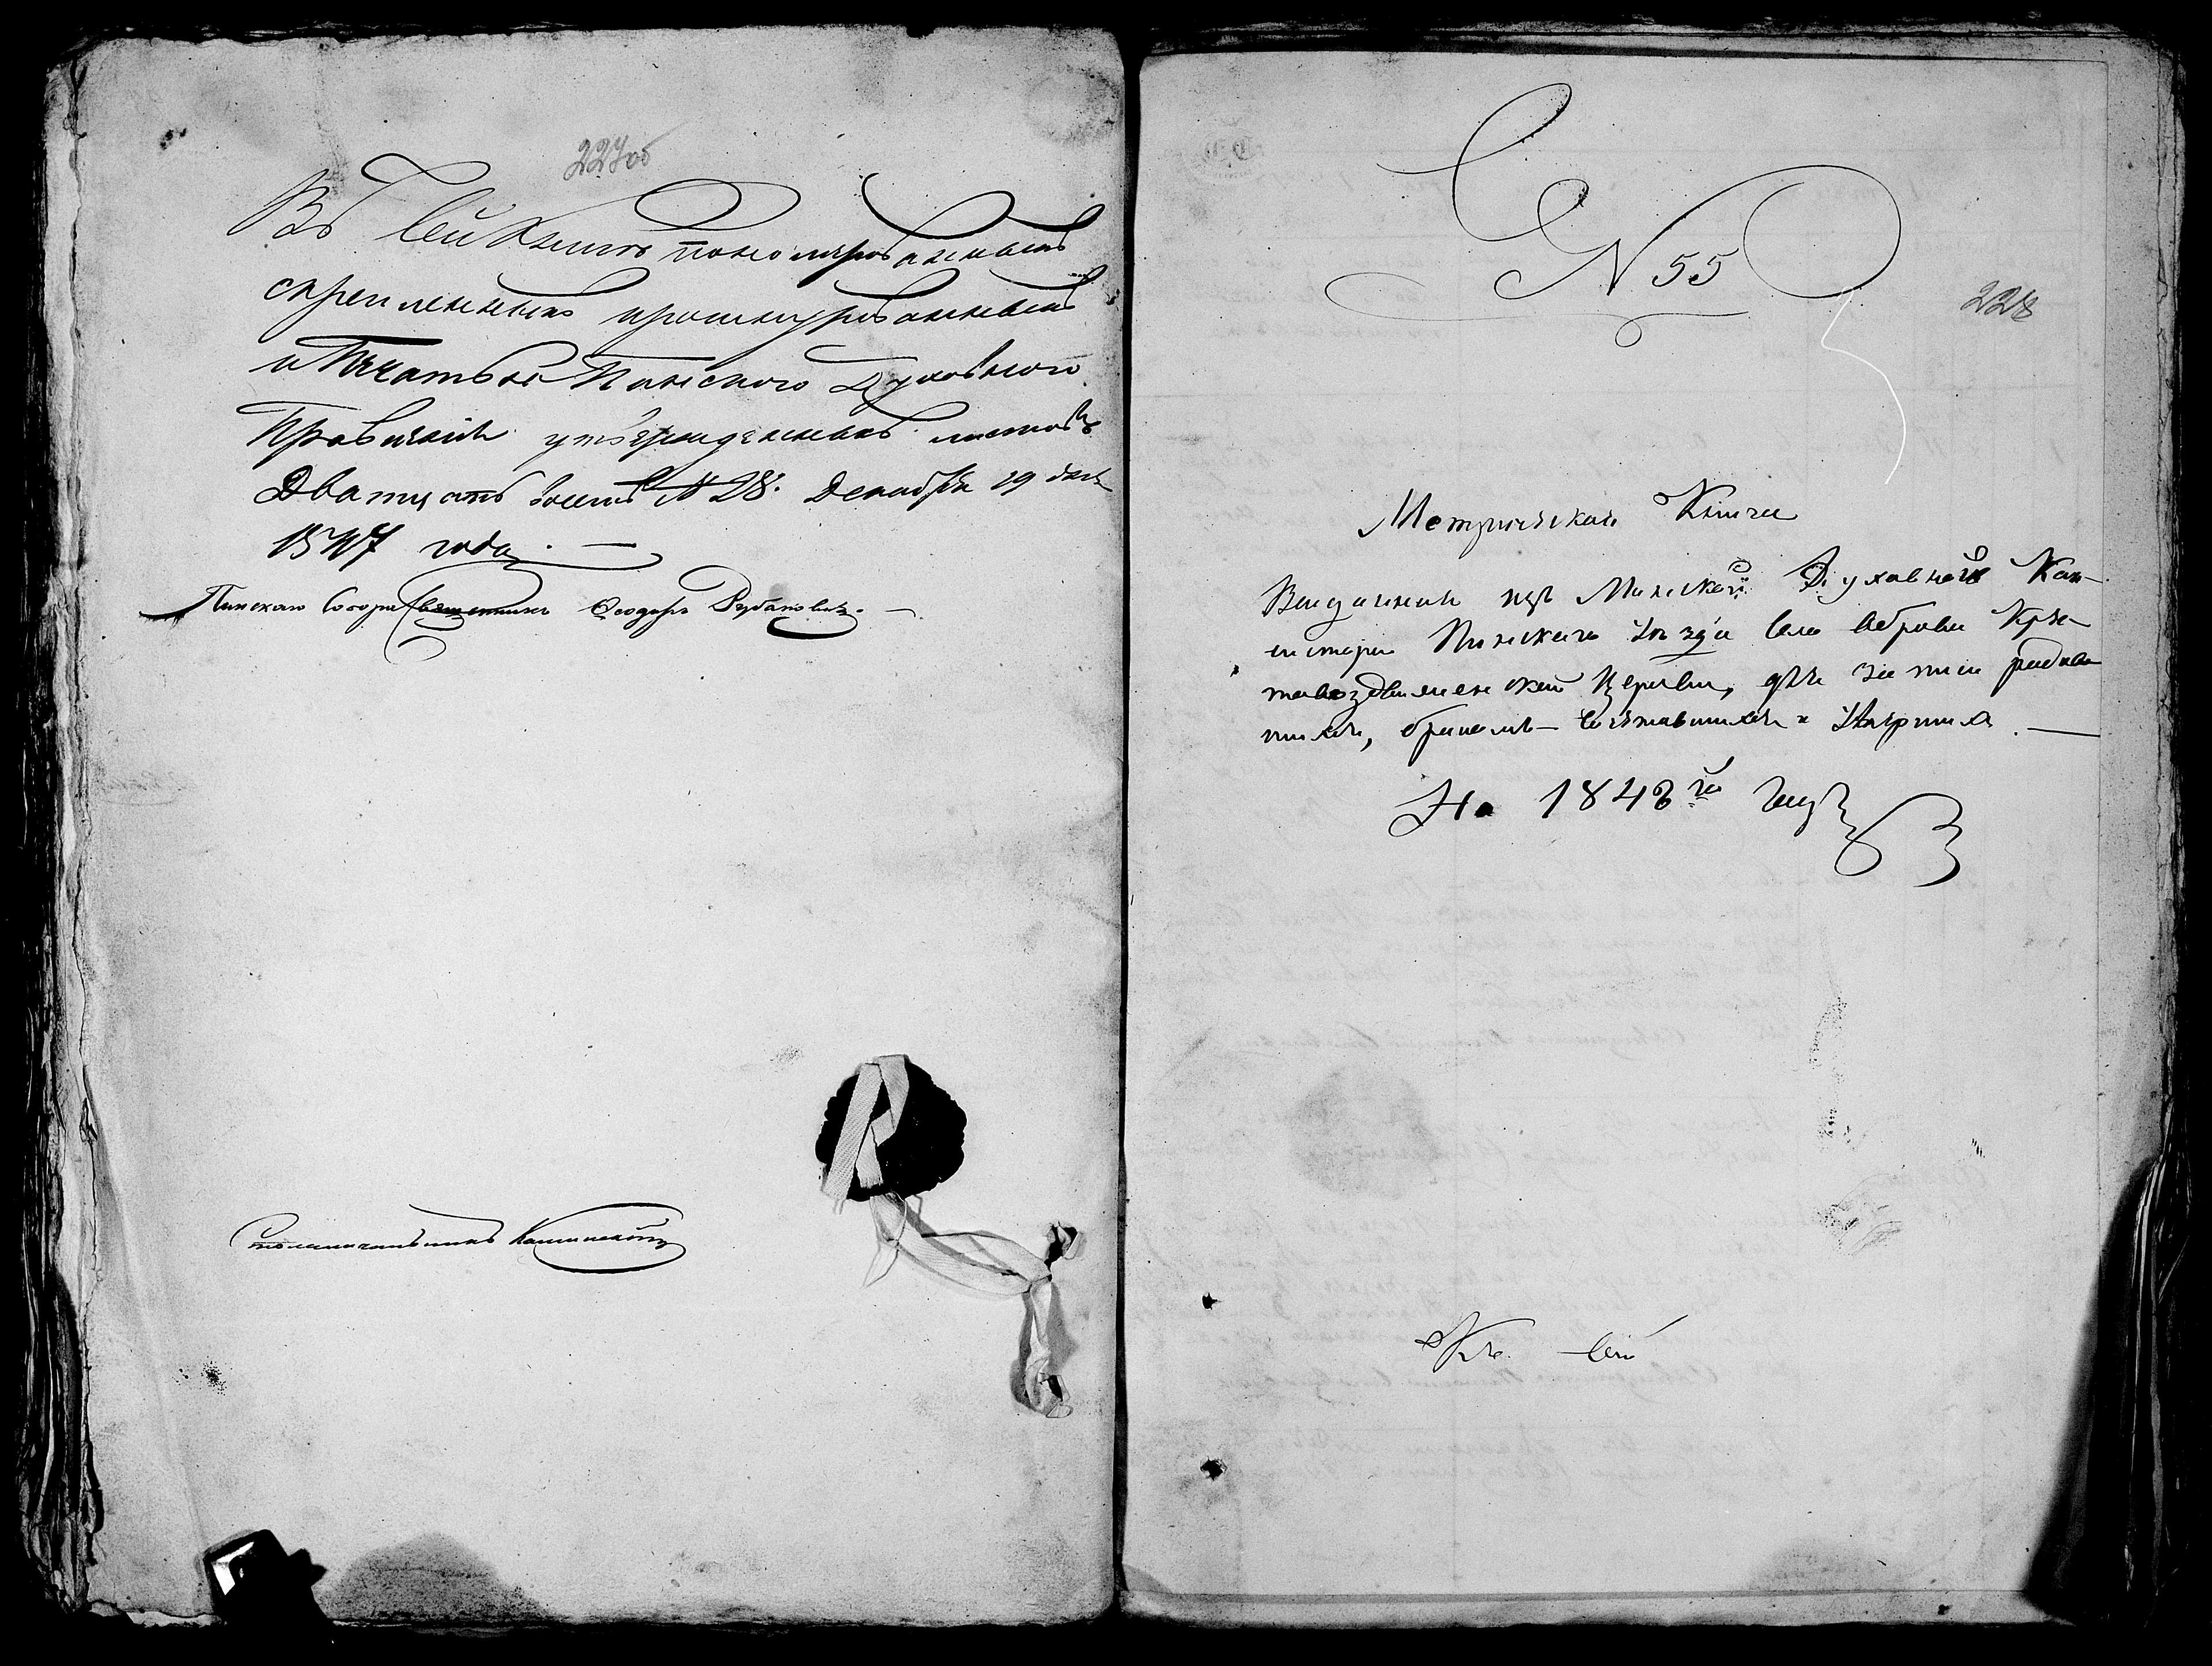 227об
Въ сей книгѣ пономерованныхъ
скрепленныхъ прошнурованныхъ
и Печатью Пинского Духовного
Правленія утвержденныхъ листовъ
Дватцать восемь № 28. Декабря 19 дня
1847 года.
Пинскаго Собора Священникъ Ѳеодоръ
Столоначальникъ
№ 55
228
Метрическая Книга
Выданная изъ Минской Духовной Кон-
систоріи Пинскаго уѣзда села Кре-
стовоздвиженской Церкви, для записи родив-
шихся, бракомъ сочетавшихся и умершихъ.
На 1848й годъ